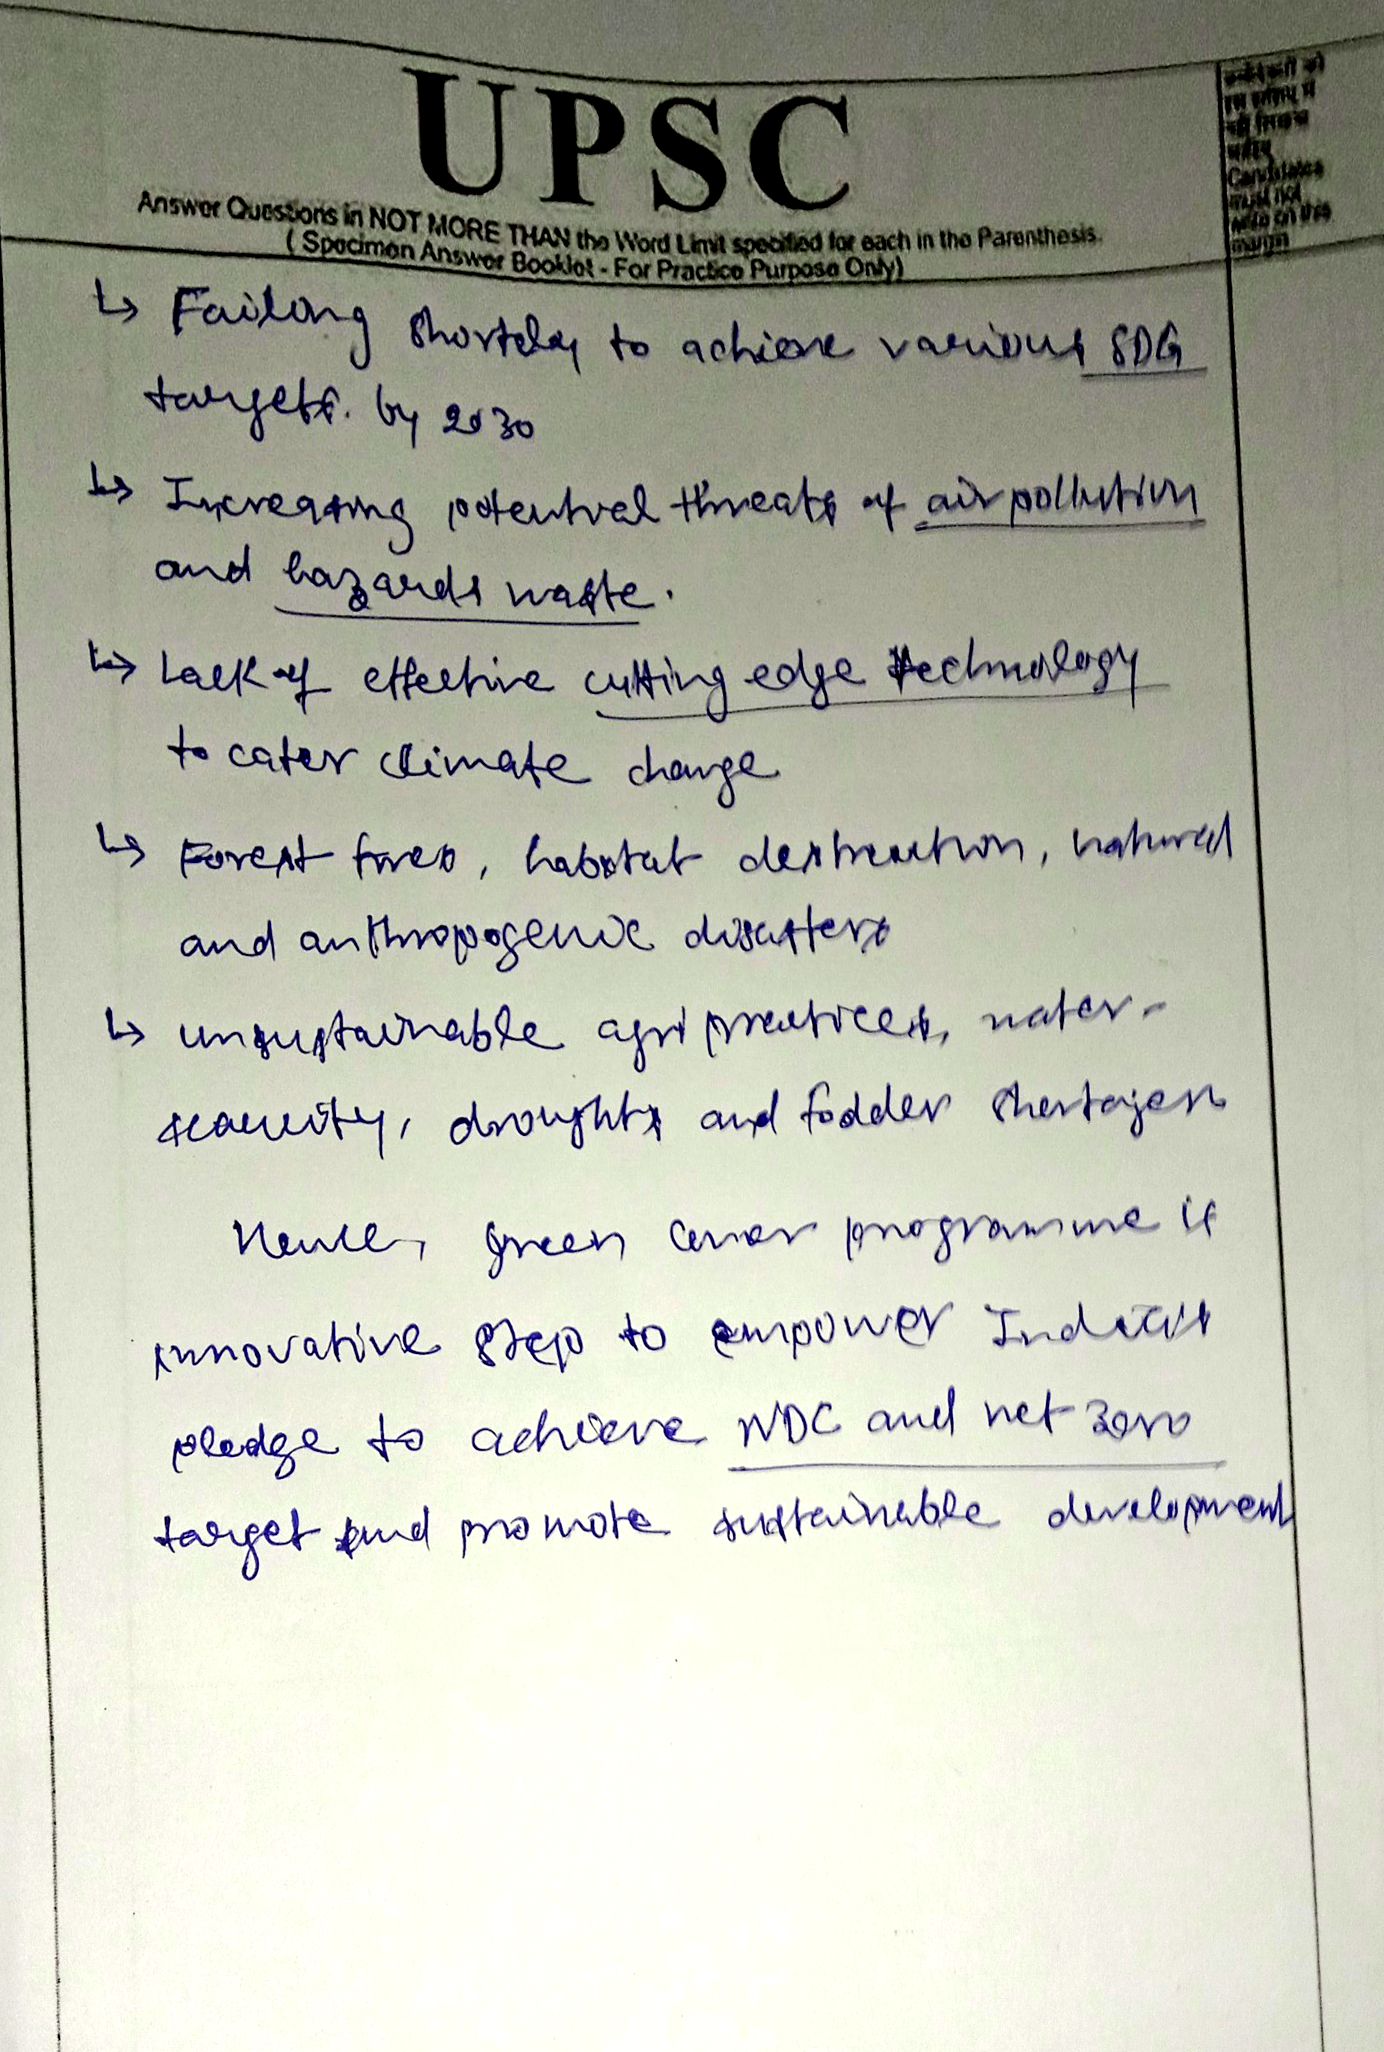 UPSC
Answer Questions in NOT MORE THAN the Word Limit specified for each in the Parenthesis.
( Specimen Answer Booklet - For Practice Purpose Only)
Candidates
must not
write on this
margin
↳ Failing shortly to achieve various SDG
targets. by 2030
↳ Increasing potential threats of air pollution
and hazards waste.
↳ Lack of effective cutting edge technology
to cater climate change
↳ Forest fires, habitat destruction, natural
and anthropogenic disasters
↳ unsustainable agri practices, water-
scarcity, droughts and fodder shortages
Hence, green cover programme is
innovative step to empower India's
pledge to achieve NDC and net zero
target and promote sustainable development